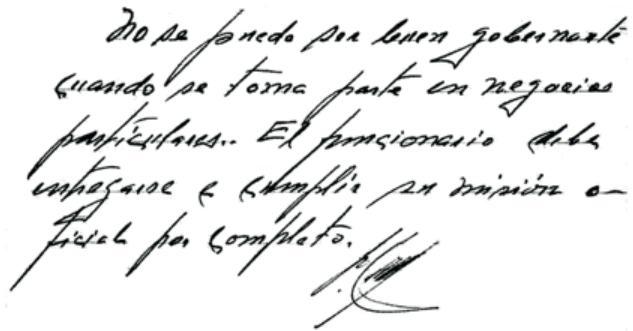 No se puede ser buen gobernante
cuando se toma parte en negocios
particulares.. El funcionario debe
entregarse a cumplir su misión o-
ficial por completo.